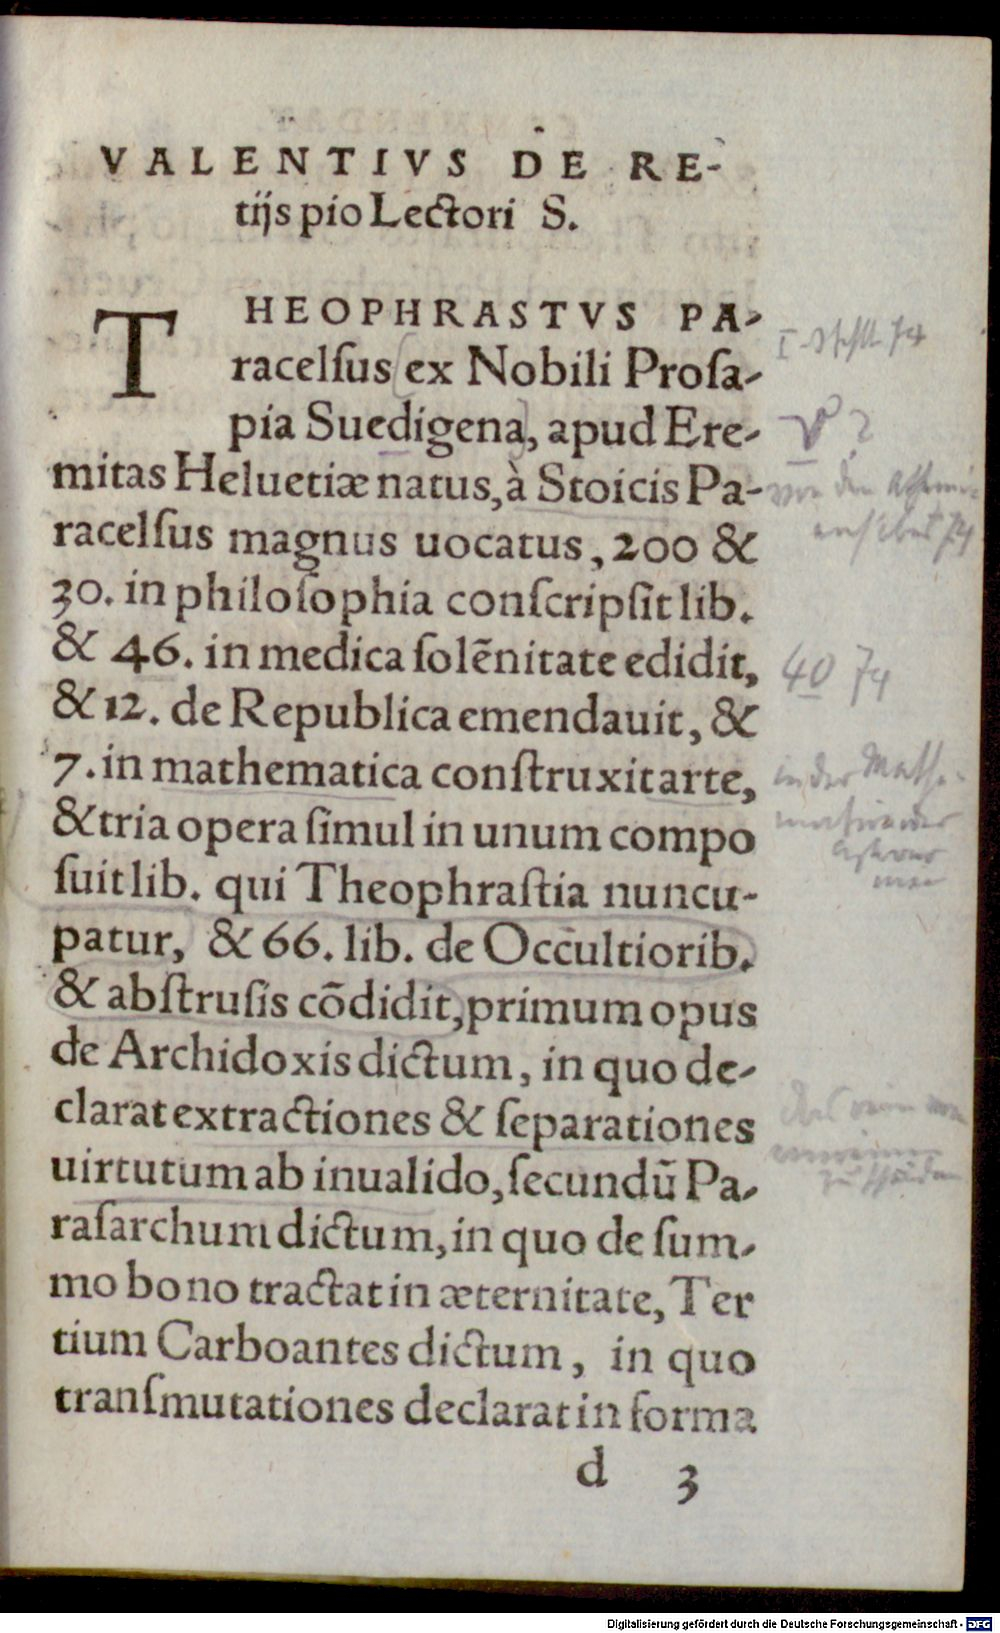 VALENTIVS DE RE-
tijs pio Lectori S.
THEOPHRASTVS PA-
racelſus ex Nobili Proſa-
pia Suedigena, apud Ere-
mitas Heluetiæ natus, à Stoicis Pa-
racelſus magnus uocatus, 200 &
30. in philoſophia conſcripſit lib.
& 46. in medica ſolẽnitate edidit,
& 12. de Republica emendauit, &
7. in mathematica conſtruxit arte,
& tria opera ſimul in unum compo
ſuit lib. qui Theophraſtia nuncu-
patur, & 66. lib. de Occultiorib.
& abſtruſis cõdidit, primum opus
de Archidoxis dictum, in quo de-
clarat extractiones & ſeparationes
uirtutum ab inualido, ſecundũ Pa-
raſarchum dictum, in quo de ſum-
mo bono tractat in æternitate, Ter
tium Carboantes dictum, in quo
tranſmutationes declarat in forma
d 3
74
?
von den
74
40 74
in der Mathe-
Digitalisierung gefördert durch die Deutsche Forschungsgemeinschaft - DFG